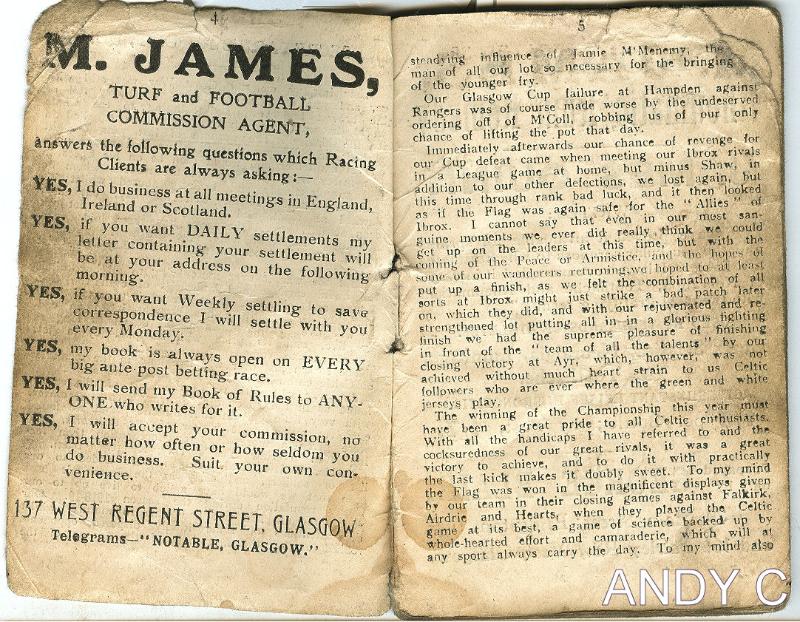 4
M. JAMES,
TURF and FOOTBALL
COMMISSION AGENT,
answers the following questions which Racing
Clients are always asking:—
YES, I do business at all meetings in England,
Ireland or Scotland.
YES, if you want DAILY settlements my
letter containing your settlement will
be at your address on the following
morning.
YES, if you want Weekly settling to save
correspondence I will settle with you
every Monday.
YES, my book is always open on EVERY
big ante-post betting race.
YES, I will send my Book of Rules to ANY-
ONE who writes for it.
YES, I will accept your commission, no
matter how often or how seldom you
do business. Suit your own con-
venience.
137 WEST REGENT STREET, GLASGOW
Telegrams—"NOTABLE, GLASGOW."
5
steadying influence of Jamie M'Menemy, the
man of all our lot so necessary for the bringing
of the younger fry.
Our Glasgow Cup failure at Hampden against
Rangers was of course made worse by the undeserved
ordering off of M'Coll, robbing us of our only
chance of lifting the pot that day.
Immediately afterwards our chance of revenge for
our Cup defeat came when meeting our Ibrox rivals
in a League game at home, but minus Shaw, in
addition to our other defections, we lost again, but
this time through rank bad luck, and it then looked
as if the Flag was again safe for the "Allies" of
Ibrox. I cannot say that even in our most san-
guine moments we ever did really think we could
get up on the leaders at this time, but with the
coming of the Peace or Armistice, and the hopes of
some of our wanderers returning, we hoped to at least
put up a finish, as we felt the combination of all
sorts at Ibrox might just strike a bad patch later
on, which they did, and with our rejuvenated and re-
strengthened lot putting all in in a glorious fighting
finish we had the supreme pleasure of finishing
in front of the "team of all the talents" by our
closing victory at Ayr, which, however, was not
achieved without much heart strain to us Celtic
followers who are ever where the green and white
jerseys play.
The winning of the Championship this year must
have been a great pride to all Celtic enthusiasts.
With all the handicaps I have referred to and the
cocksuredness of our great rivals, it was a great
victory to achieve, and to do it with practically
the last kick makes it doubly sweet. To my mind
the Flag was won in the magnificent displays given
by our team in their closing games against Falkirk,
Airdrie and Hearts, when they played the Celtic
game at its best, a game of science backed up by
whole-hearted effort and camaraderie, which will at
any sport always carry the day. To my mind also
ANDY C